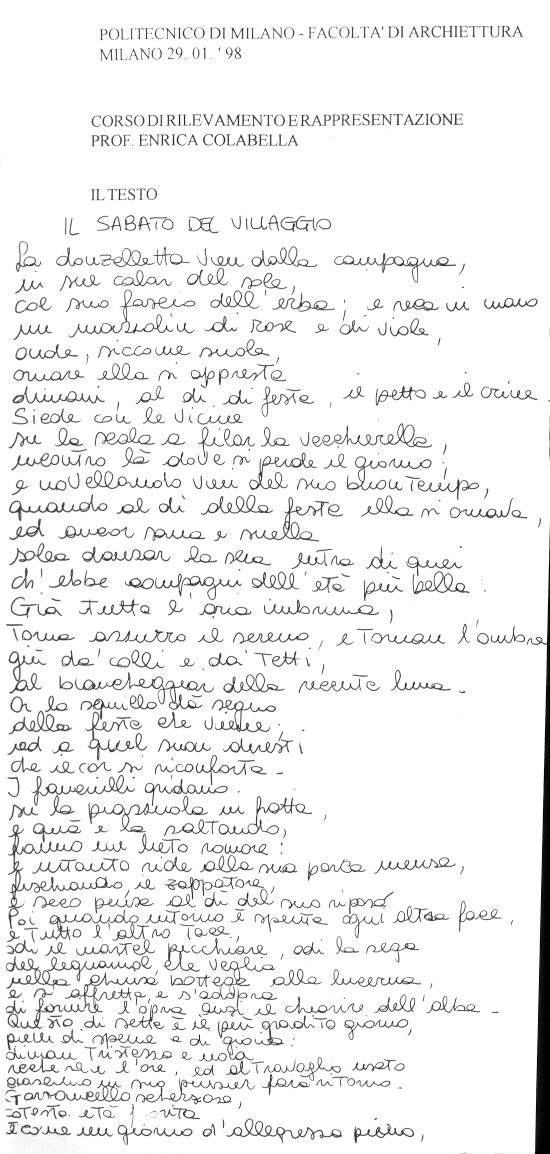 POLITECNICO DI MILANO - FACOLTA' DI ARCHIETTURA
MILANO 29. 01. ' 98
CORSO DI RILEVAMENTO E RAPPRESENTAZIONE
PROF. ENRICA COLABELLA
IL TESTO
IL SABATO DEL VILLAGGIO
La donzelletta vien dalla campagna,
in sul calar del sole,
col suo fascio dell'erba; e reca in mano
un mazzolin di rose e di viole,
onde, siccome suole,
ornare ella si appresta
dimani, al dì di festa, il petto e il crine.
Siede con le vicine
su la scala a filar la vecchierella,
incontro là dove si perde il giorno;
e novellando vien del suo buon tempo,
quando al dì della festa ella si ornava,
ed ancor sana e snella
solea danzar la sera intra di quei
ch'ebbe compagni dell'età più bella.
Già tutta l'aria imbruna,
Torna azzurro il sereno, e tornan l'ombre
giù da' colli e da' tetti,
al biancheggiar della recente luna.
Or la squilla dà segno
della festa che viene;
ed a quel suon diresti
che il cor si riconforta.
I fanciulli gridano
su la piazzuola in frotta,
e quà e là saltando,
fanno un lieto romore:
e intanto riede alla sua parca mensa,
fischiando, il zappatore,
e seco pensa al dì del suo riposo
Poi quando intorno è spenta ogni altra face,
e tutto l'altro tace,
odi il martel picchiare, odi la sega
del legnaiuol, che veglia
nella chiusa bottega alla lucerna,
e s'affretta, e s'adopra
di fornire l'opra anzi il chiarire dell'alba.
Questo di sette è il più gradito giorno,
pien di speme e di gioia:
diman tristezza e noia
recheran l'ore, ed al travaglio usato
ciascuno in suo pensier farà ritorno.
Garzoncello scherzoso,
cotesta età fiorita
è come un giorno d'allegrezza pieno,